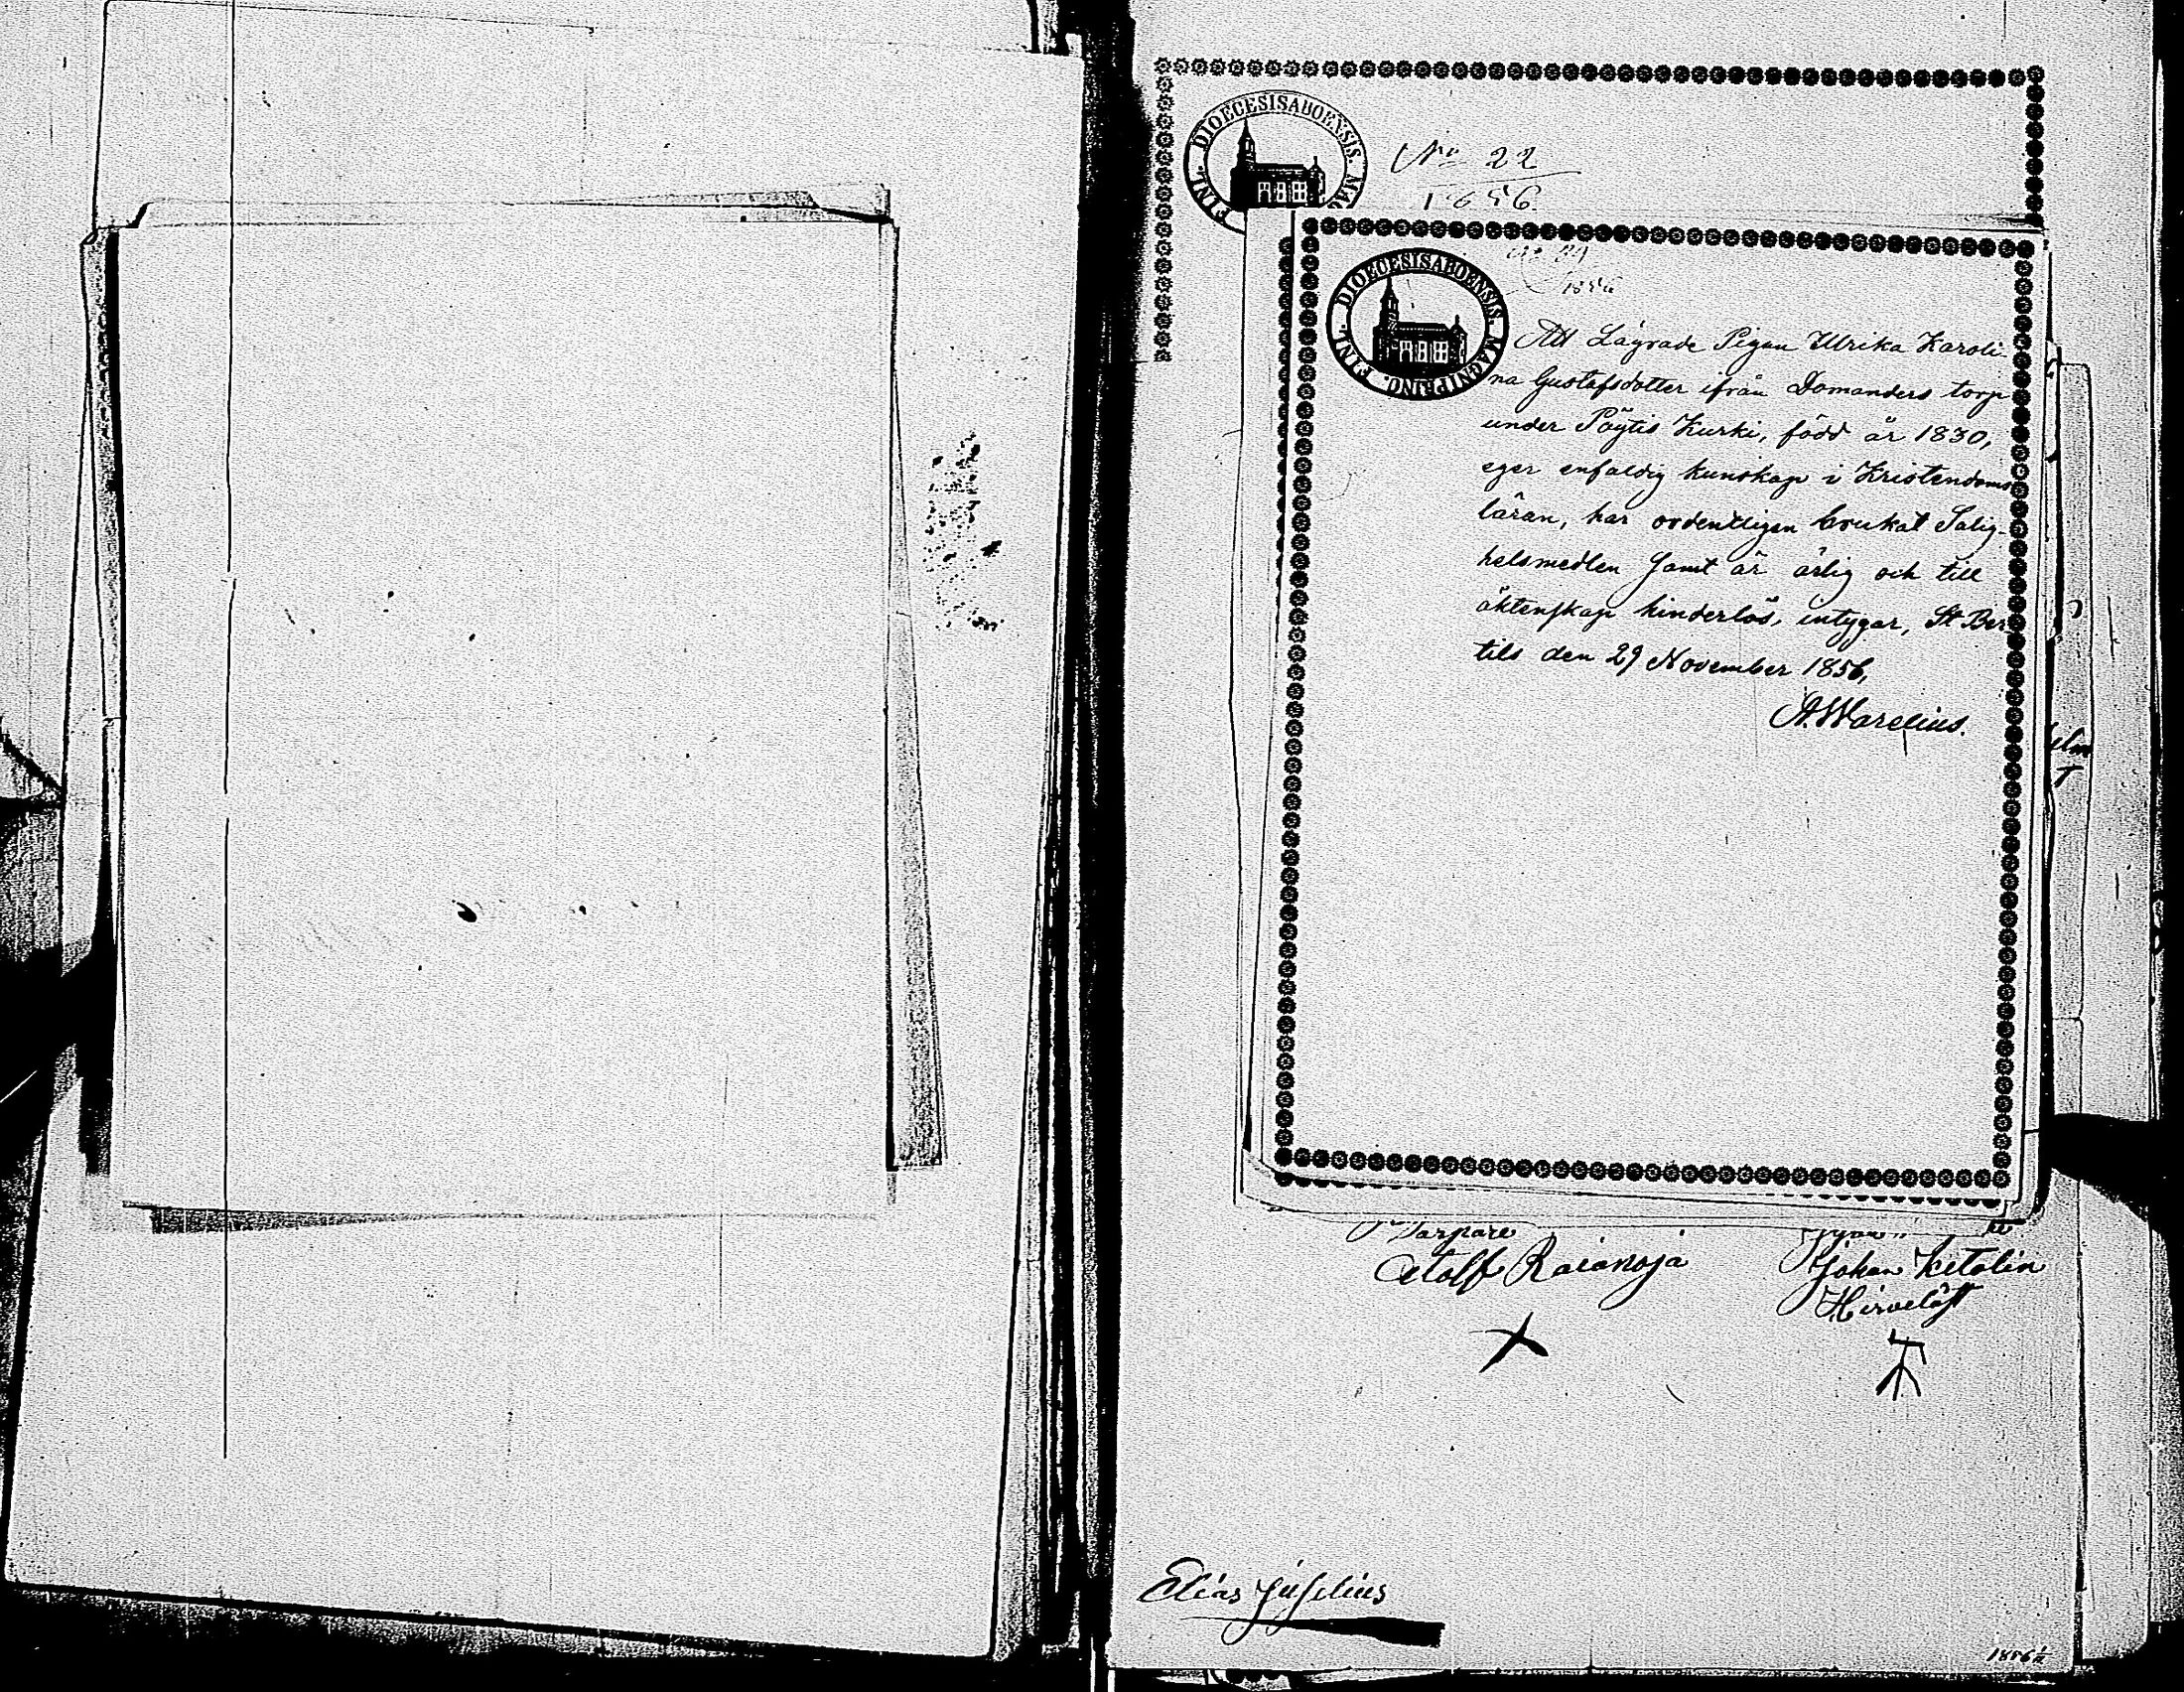 DIOECESIS ABOENSIS. MAG
FINL.
No 22
1856.
1856
DIOECESIS ABOENSIS. MAGNI PRINC. FINL.
Att Lägrade Pigan Ulrika Karoli-
na Gustafsdotter ifrån Domanders torp
under Pöytis Kurki, född år 1830,
eger enfaldig kunskap i Kristendoms
läran, har ordentligen brukat Salig-
hetsmedlen samt är ärlig och till
äktenskap hinderlös, intygar, St Ber
tils den 29 November 1856,
A. Warelius.
Torpare
Johan Ketolin
Hirveläst
Elias
1856